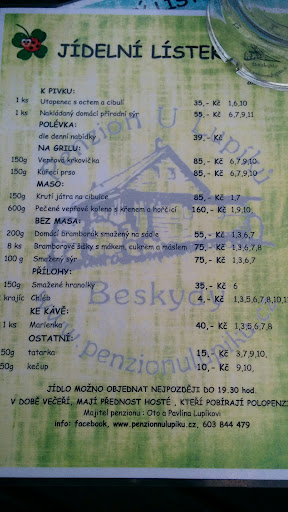 JÍDELNÍ LÍSTEK
K PIVKU:
1 ks Utopenec s octem a cibulí 35,- Kč 1,6,10
1 ks Nakládaný domácí přírodní sýr 55,- Kč 6,7,9,11
POLÉVKA:
dle denní nabídky 39,- Kč
NA GRILU:
150g Vepřová krkovička 85,- Kč 6,7,9,10
150g Kuřecí prso 85,- Kč 6,7,9,10,
MASO:
150g Krutí játra na cibulce 85,- Kč 1,7
600g Pečené vepřové koleno s křenem a hořčicí 160,- Kč 1,9,10,
BEZ MASA:
200g Domácí bramborák smažený na sádle 55,- Kč 1,3,6,7
8 ks Bramborové šišky s mákem, cukrem a máslem 75,- Kč 1,3,6,7,8
100 g Smažený sýr 75,- Kč 1,3,6,7
PŘÍLOHY:
150g Smažené hranolky 35,- Kč 6
krajíc Chléb 4,- Kč 1,3,5,6,7,8,10,11
KE KÁVĚ:
1 ks Marlenka 40,- Kč 1,3,5,6,7,8
OSTATNÍ:
50g tatarka 15,- Kč 3,7,9,10,
50g kečup 10,- Kč 9,10,
JÍDLO MOŽNO OBJEDNAT NEJPOZDĚJI DO 19.30 hod.
V DOBĚ VEČEŘÍ, MAJÍ PŘEDNOST HOSTÉ , KTEŘÍ POBÍRAJÍ POLOPENZI
Majitel penzionu : Oto a Pavlína Lupíkovi
info: facebook, www.penzionulupiku.cz, 603 844 479
Penzion U Lupíků
Beskydy
www.penzionulupiku.cz